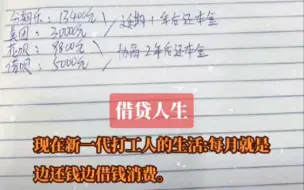 分期乐：13400元
美团：3000元
延期1年后还本金
花呗：9800元
借呗：5000元
协商2年后还本金
借贷人生
现在新一代打工人的生活:每月就是
边还钱边借钱消费。